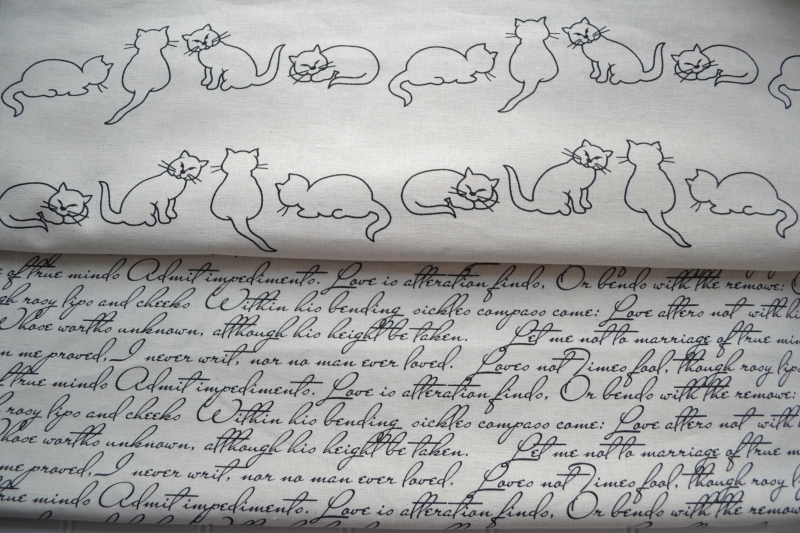 of true minds Admit impediments. Love is alteration finds, Or bends with the remove:
rosy lips and cheeks Within his bending sickles compass come: Love alters not with
Whose worths unknown, although his height be taken. Let me not to marriage of true
me proved, I never writ, nor no man ever loved. Loves not Times fool, though rosy lips
true minds Admit impediments. Love is alteration finds, Or bends with the remove:
rosy lips and cheeks Within his bending sickles compass come: Love alters not with
Whose worths unknown, although his height be taken. Let me not to marriage of true
me proved, I never writ, nor no man ever loved. Loves not Times fool, though rosy
true minds Admit impediments. Love is alteration finds, Or bends with the remove: